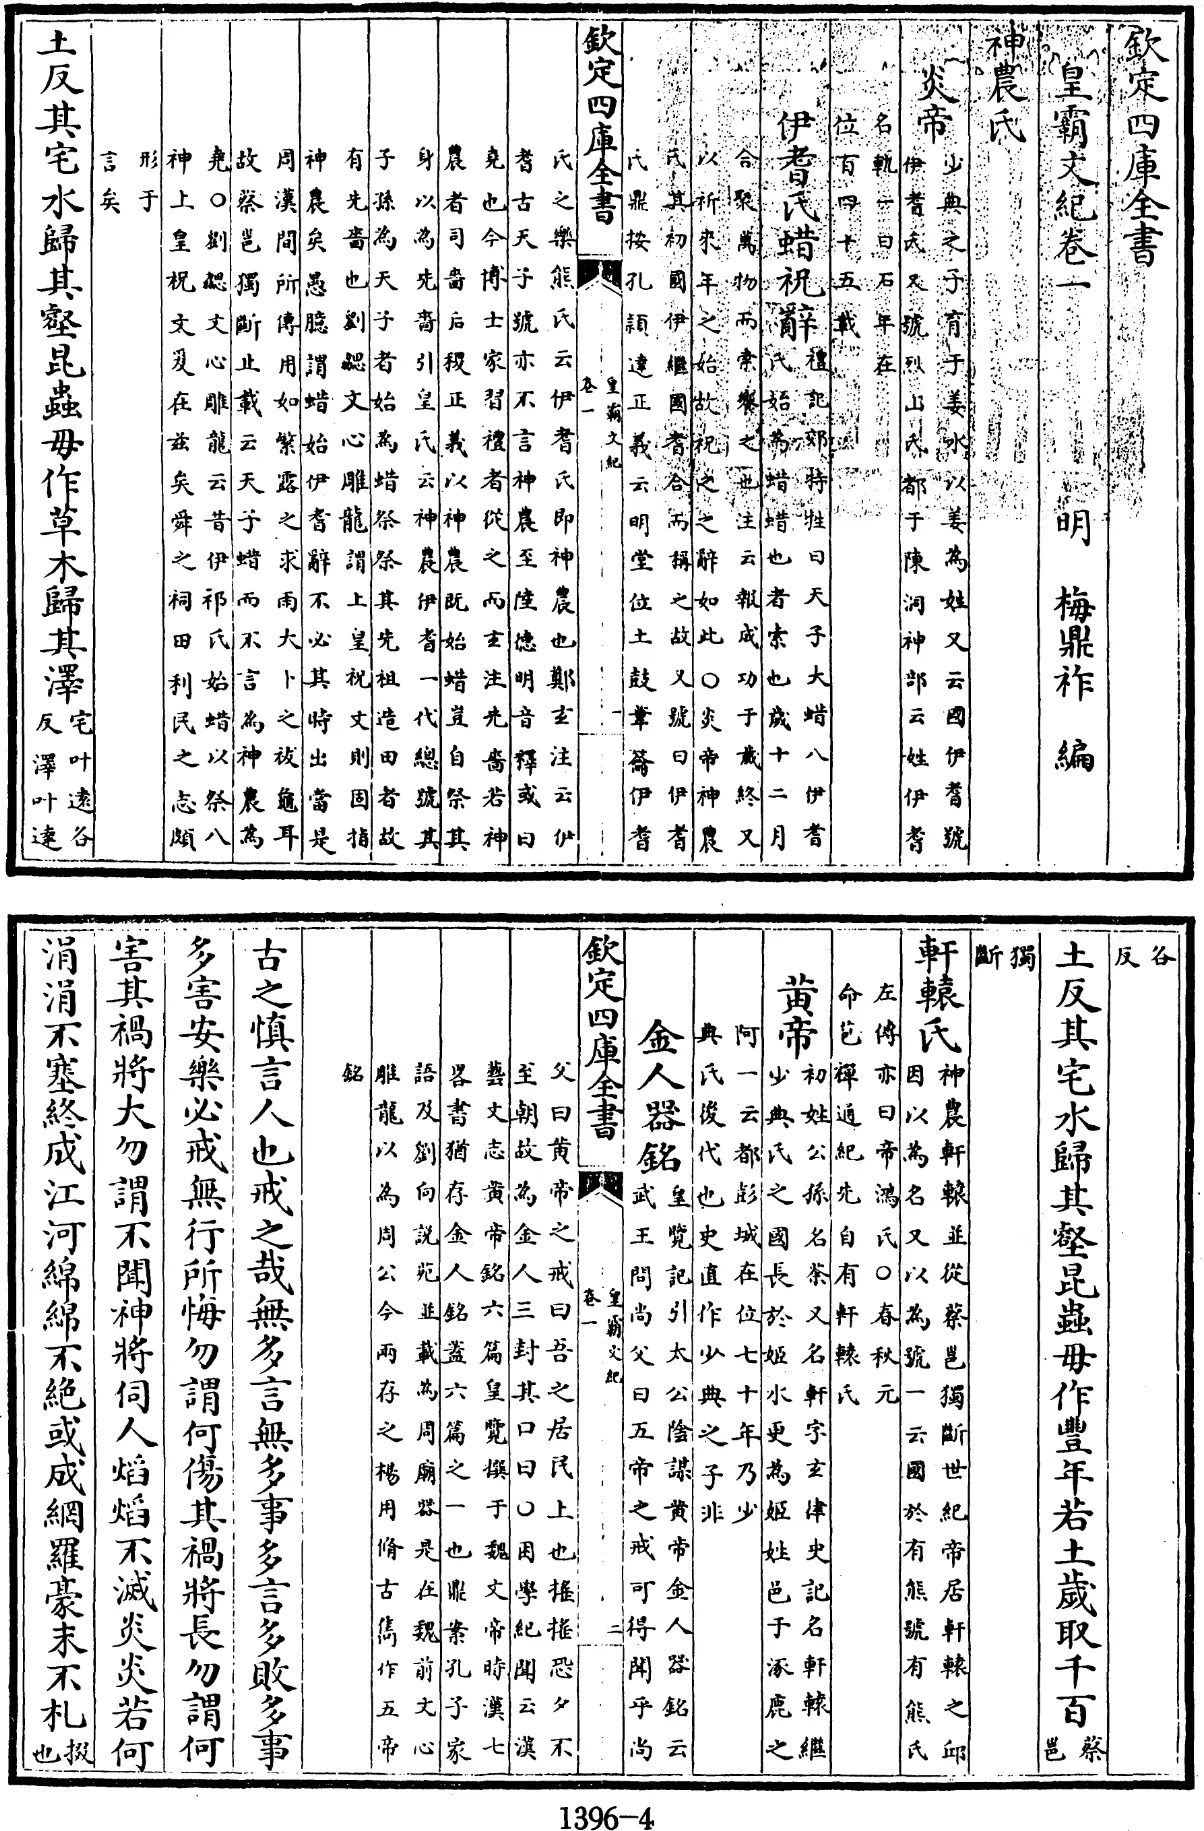 欽定四庫全書
皇霸文紀卷一 明 梅鼎祚 編
神農氏
炎帝 少典之子育于姜水以姜為姓又云國伊耆號
伊耆氏又號烈山氏都于陳洞神部云姓伊耆
名軌一曰石年在
位百四十五載
伊耆氏蜡祝辭 禮記郊特牲曰天子大蜡八伊耆
氏始為蜡蜡也者索也歲十二月
合聚萬物而索饗之也注云報成功于歲終又
以祈來年之始故祀之之辭如此○炎帝神農
氏其初國伊繼國耆合而稱之故又號曰伊耆
氏鼎按孔頴達正義云明堂位土鼓葦籥伊耆
欽定四庫全書 皇霸文紀
卷一 一
氏之樂熊氏云伊耆氏即神農也鄭玄注云伊
耆古天子號亦不言神農至陸德明音釋或曰
堯也今博士家習禮者從之而玄注先嗇若神
農者司嗇后稷正義以神農既始蜡豈自祭其
身以為先嗇引皇氏云神農伊耆一代總號其
子孫為天子者始為蜡祭祭其先祖造田者故
有先嗇也劉勰文心雕龍謂上皇祝文則固指
神農矣愚臆謂蜡始伊耆辭不必其時出當是
周漢間所傳用如繁露之求雨大卜之祓龜耳
故蔡邕獨斷止載云天子蜡而不言為神農為
堯○劉勰文心雕龍云昔伊祁氏始蜡以祭八
神上皇祝文爰在茲矣舜之祠田利民之志頗
形于
言矣
土反其宅水歸其壑昆蟲毋作草木歸其澤 宅叶達各
反澤叶達
各
反
土反其宅水歸其壑昆蟲毋作豐年若土歲取千百 蔡邕
獨
斷
軒轅氏 神農軒轅並從蔡邕獨斷世紀帝居軒轅之邱
因以為名又以為號一云國於有熊號有熊氏
左傳亦曰帝鴻氏○春秋元
命苞禪通紀先自有軒轅氏
黃帝 初姓公孫名荼又名軒字玄律史記名軒轅繼
少典氏之國長於姬水更為姬姓邑于涿鹿之
阿一云都彭城在位七十年乃少
典氏後代也史直作少典之子非
金人器銘 皇覽記引太公陰謀黃帝金人器銘云
武王問尚父曰五帝之戒可得聞乎尚
欽定四庫全書 皇霸文紀
卷一 二
父曰黃帝之戒曰吾之居民上也搖搖恐夕不
至朝故為金人三封其口曰○困學紀聞云漢
藝文志黃帝銘六篇皇覽撰于魏文帝時漢七
畧書猶存金人銘蓋六篇之一也鼎案孔子家
語及劉向說苑並載為周廟器是在魏前文心
雕龍以為周公今兩存之楊用脩古雋作五帝
銘
古之慎言人也戒之哉無多言無多事多言多敗多事
多害安樂必戒無行所悔勿謂何傷其禍將長勿謂何
害其禍將大勿謂不聞神將伺人焰焰不滅炎炎若何
涓涓不塞終成江河綿綿不絶或成網羅豪末不札 掇
也
1396-4